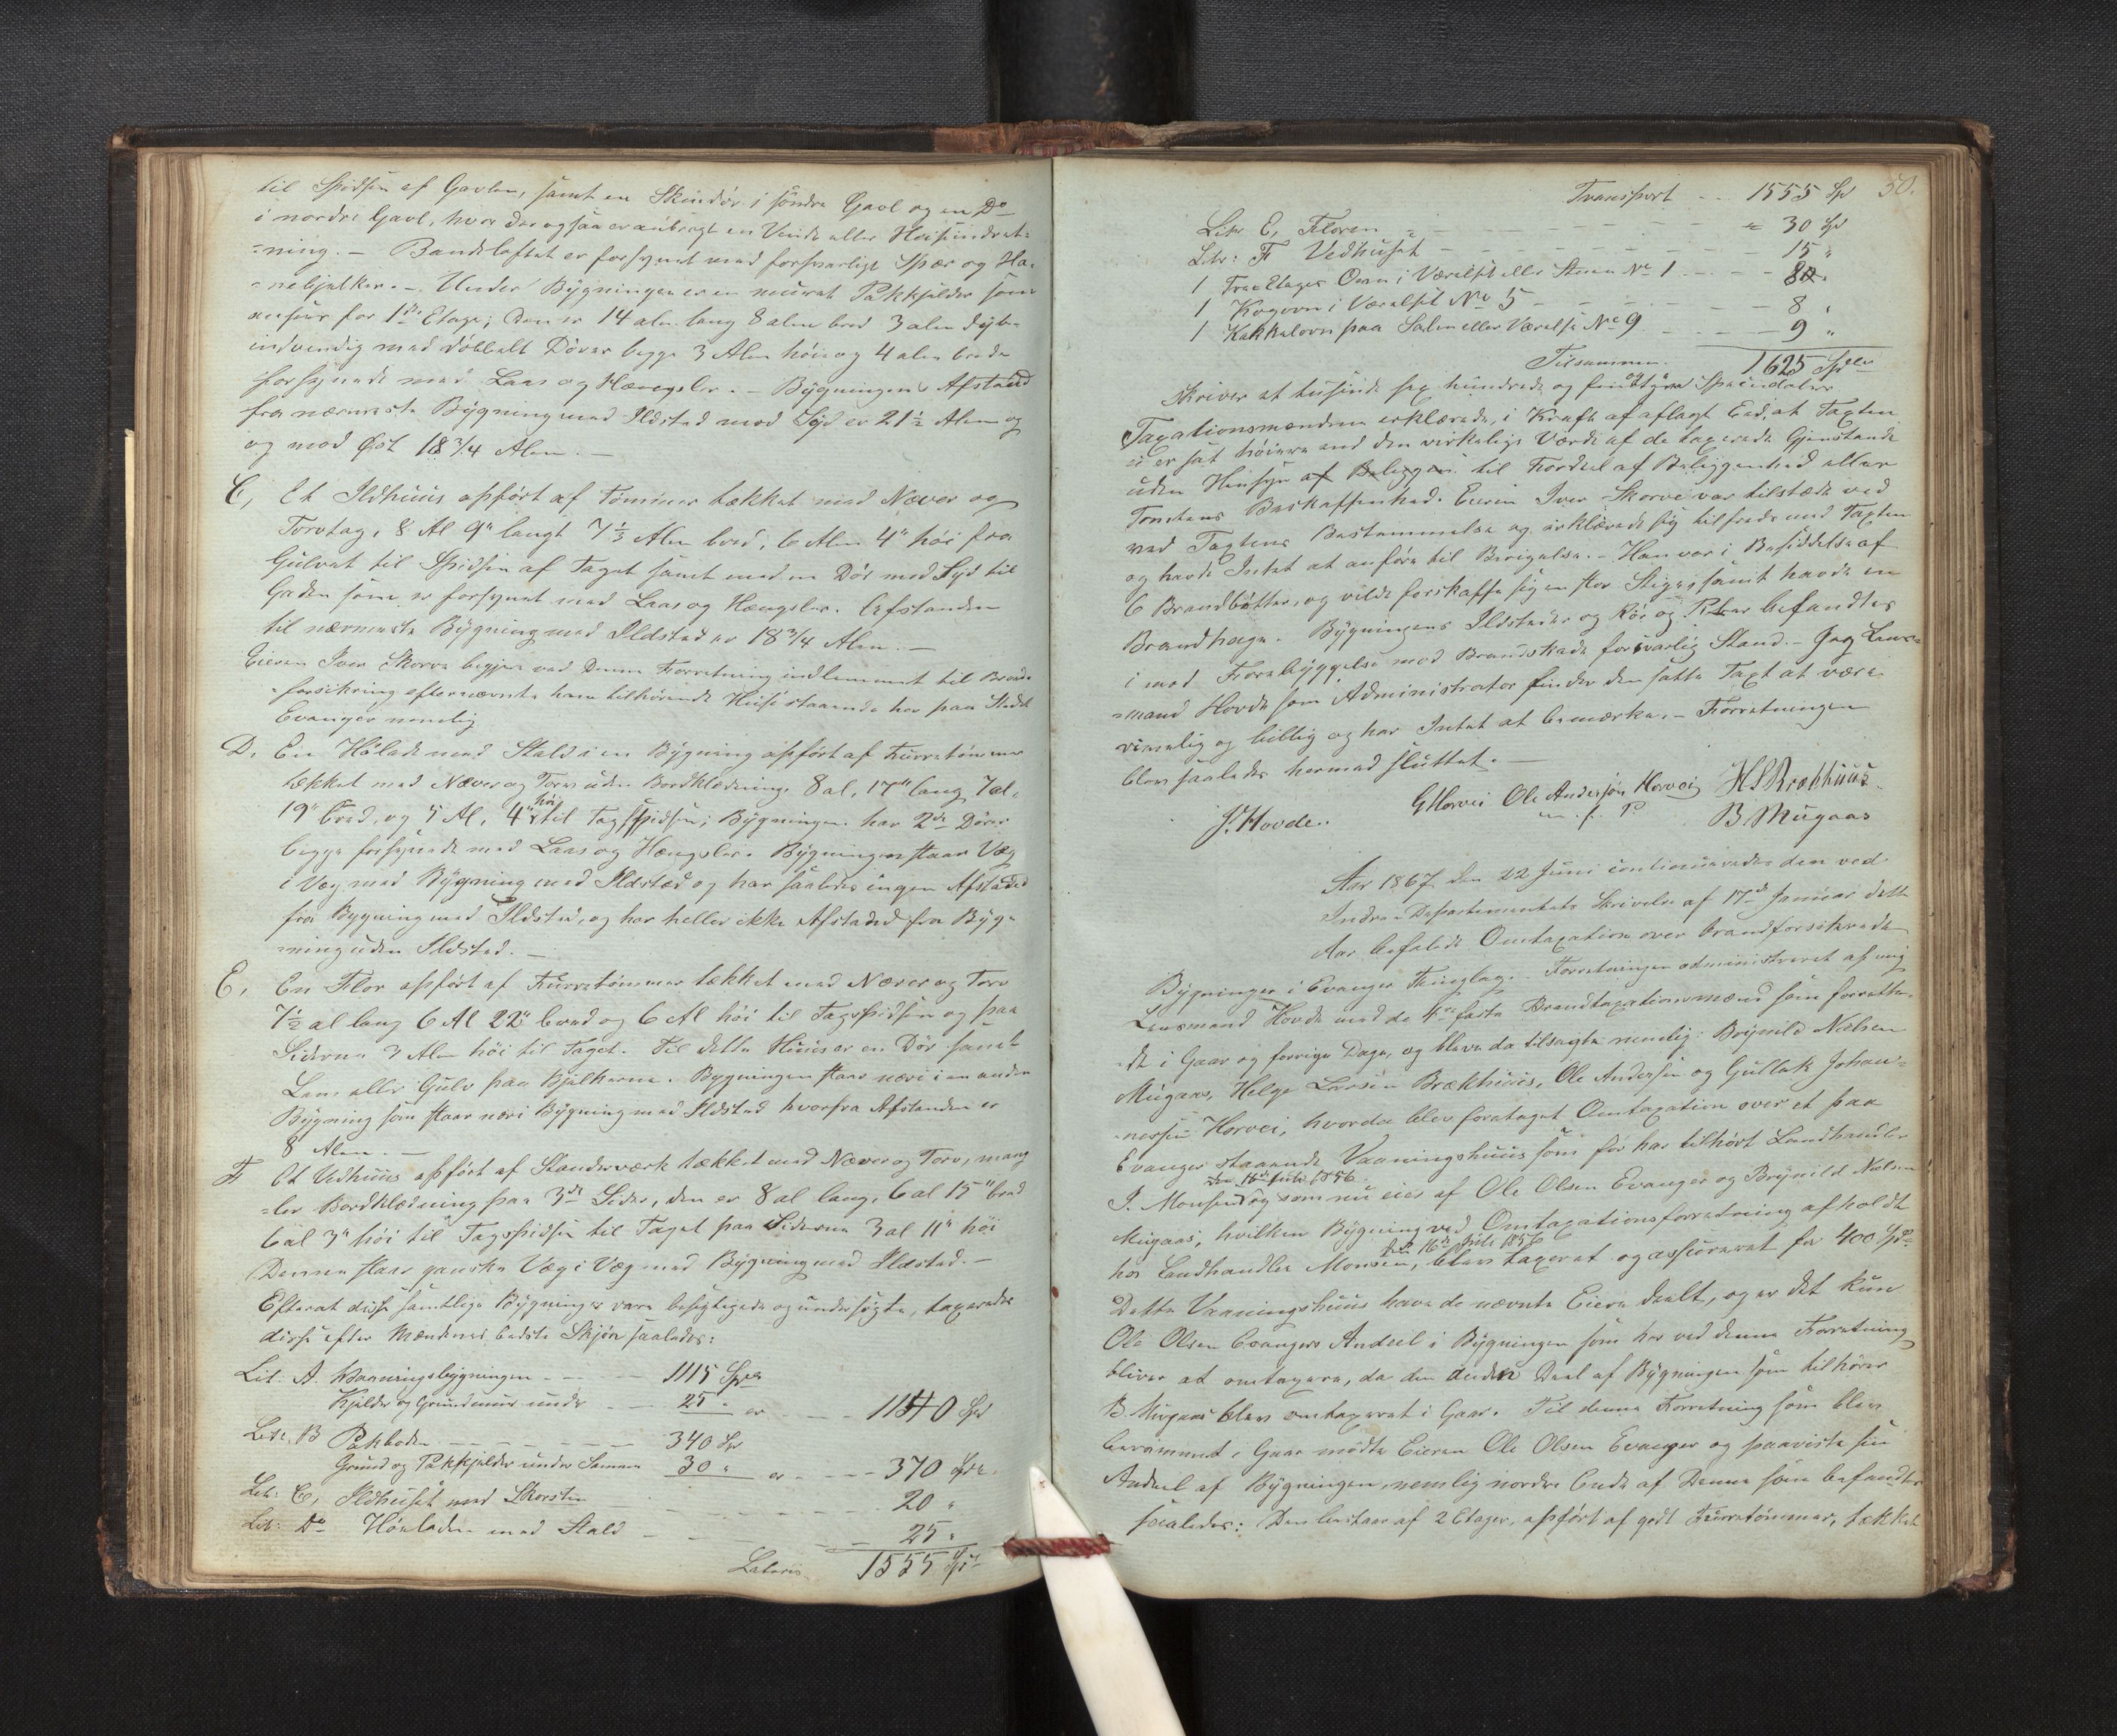 til Spidsen af Gavlen, samt en Skindør i søndre Gavl og en Do
i nordre Gavl, hvor der ogsaa er anbragt en Vinde eller Heiseindret-
-ning. — Bandloftet er forsynet med forsvarlige Spær og Ha-
-nebjælker. — Under Bygningen er en muret Pakkjelder som
ansees for 1ste Etage; den er 14 alen lang 8 alen bred 3 alen dyb
indvendig med dobbelt Døres begge 3 Alen høie og 4 alen brede
forsynede med Laas og Hængsler. — Bygningens Afstand
fra nærmeste Bygning med Ildsted mod Syd er 21½ Alen og
og mod Øst 18 3/4 Alen. —
C, Et Ildhuus opført af Tømmer tækket med Næver og
Torvtag, 8 Al 9" langt 7⅓ Alen bred, 6 Alen 4" høi fra
Gulvet til Spidsen af Taget samt med en Dør mod Syd til
Gaden som er forsynet med Laas og Hængsler. Afstanden
til nærmeste Bygning med Ildsted er 18 3/4 Alen. —
Eieren Iver Skorve begjær ved denne Forretning indlemmet til Brand-
-forsikring efternævnte ham tilhørende Huse staaende her paa Stedet
Evanger nemlig
D. En Hølade med Stald i en Bygning opført af Furretømmer
tækket med Næver og Torv uden Bordklædning. 8 al, 17" lang 7 al.
19" bred, og 5 Al, 4" høi til Tagspidsen; Bygningen har 2de Døre
begge forsynede med Laas og Hængsler. Bygningen staar Væg
i Væg med Bygning med Ildsted og har saaledes ingen Afstand
fra Bygning med Ildsted, og har heller ikke Afstand fra Byg-
-ning uden Ildsted. —
E, En Flor opført af Furretømmer tækket med Næver og Torv
7½ al lang 6 Al 22" bred og 6 Al høi til Tagspidsen og paa
Siderne 3 Alen høi til Taget. Til dette Huus er en Dør samt
Lem eller Gulv paa Bjelkerne. Bygningen staar næri en anden
Bygning som staar næri Bygning med Ildsted hvorfra Afstanden er
8 Alen. —
F Et Vedhuus opført af Standerværk tækket med Næver og Torv, mang
-ler Bordklædning paa 3de Sider, den er 8 al lang, 6 al 15" bred
6 al 3" høi til Tagspidsen til Taget paa Siderne 3 al 11" høi
Denne staar ganske Væg i Væg med Bygning med Ildsted. —
Efterat disse samtlige Bygninger vare besigtigede og undersøgte, taxeredes
disse efter Mændenes bedste Skjøn saaledes:
Lit. A. Vaaningsbygningen - - - - 1115 Spd
Kjelder og Grundmuur under - - 25 " er - - - 1140 Spd
Litr. B Pakboden - - - - - - 340 Spd
Grund og Pakkjelder under Samme 30 " er - - - 370 Spd.
Litr: C, Ildhuset med Skorsten - - - 20 "
Litr: D Høeladen med Stald - - - - 25 "
Lateris 1555 Spd
50.
Transport - - 1555 Spd
Litr E, Floren - - - - - " 30 Spd
Litr: F Vedhuset - - - - - - 15 "
1 Tree Etages Ovn i Værelset eller Stuen No 1 - - - 8 "
1 Kogovn i Værelset No 5 - - - - - 8 "
1 Kakkelovn paa Salen eller Værelse No 9 - - - 9 "
Tilsammen. 1625 Spd
skriver et tusinde sex hundrede og fem og tyve Speciedaler
Taxationsmændene erklærede, i Kraft af aflagt Eed, at Taxten
ei er sat høiere end den virkelige Værdi af de taxerede Gjenstande
uden Hensyn af Beliggen til Fordeel af Beliggenhed eller
Tomtens Beskaffenhed. Eieren Iver Skorve var tilstæde ved
ved Taxtens Bestemmelse og erklærede sig tilfreds med Taxten
og havde Intet at anføre til Berigelse. — Han var i Besiddelse af
6 Brandbøtter, og vilde forskaffe sig en stor Stige, samt havde en
Brandhage. Bygningens Ildsteder og Rør og Piber befandtes
i mod Forebyggelse mod Brandskade forsvarlig Stand. — Jeg Lens-
-mand Hovde som Administrator finder den satte Taxt at være
rimelig og billig og har Intet at bemærke. — Forretningen
blev saaledes hermed sluttet. —
J. Hovde. GHorvei Ole Andersen Horvei HLBrækhuus
m. f. P. B Mugaas
Aar 1867 den 22 Juni continueredes den ved
Indre-Departementets Skrivelse af 17de Januar dette
Aar befalede Omtaxation over brandforsikrede
Bygninger i Evanger Thinglag. Forretningen administreret af mig
Lensmand Hovde med de 4re faste Brandtaxationsmænd som forrette-
-de i Gaar og forrige Dage, og bleve da tilsagte nemlig: Brynild Nielsen
Mugaas, Helge Larsen Brækhuus, Ole Andersen og Gullak Johan-
-nessen Horvei, hvorda blev foretaget Omtaxation over et paa
Evanger staaende Vaaningshuus som før har tilhørt Landhandler
den 16de Juli 1856
J. Monsen og som nu eies af Ole Olsen Evanger og Brynild Nielsen
Mugaas, hvilken Bygning ved Omtaxationsforretning afholdt
den 16de Juli 1856
hos Landhandler Monsen, blev taxeret og assureret for 400 Spd.
Dette Vaaningshuus have de nævnte Eiere deelt, og er det kun
Ole Olsen Evangers Andeel i Bygningen som her ved denne Forretning
bliver at omtaxere, da den anden Deel af Bygningen som tilhører
B. Mugaas blev omtaxeret i Gaar. Til denne Forretning som blev
berammet i Gaar mødte Eieren Ole Olsen Evanger og paaviste sin
Andeel af Bygningen, nemlig nordre Ende af Denne som befandtes
saaledes: Den bestaar af 2 Etager, opført af godt Furretømmer, tækket